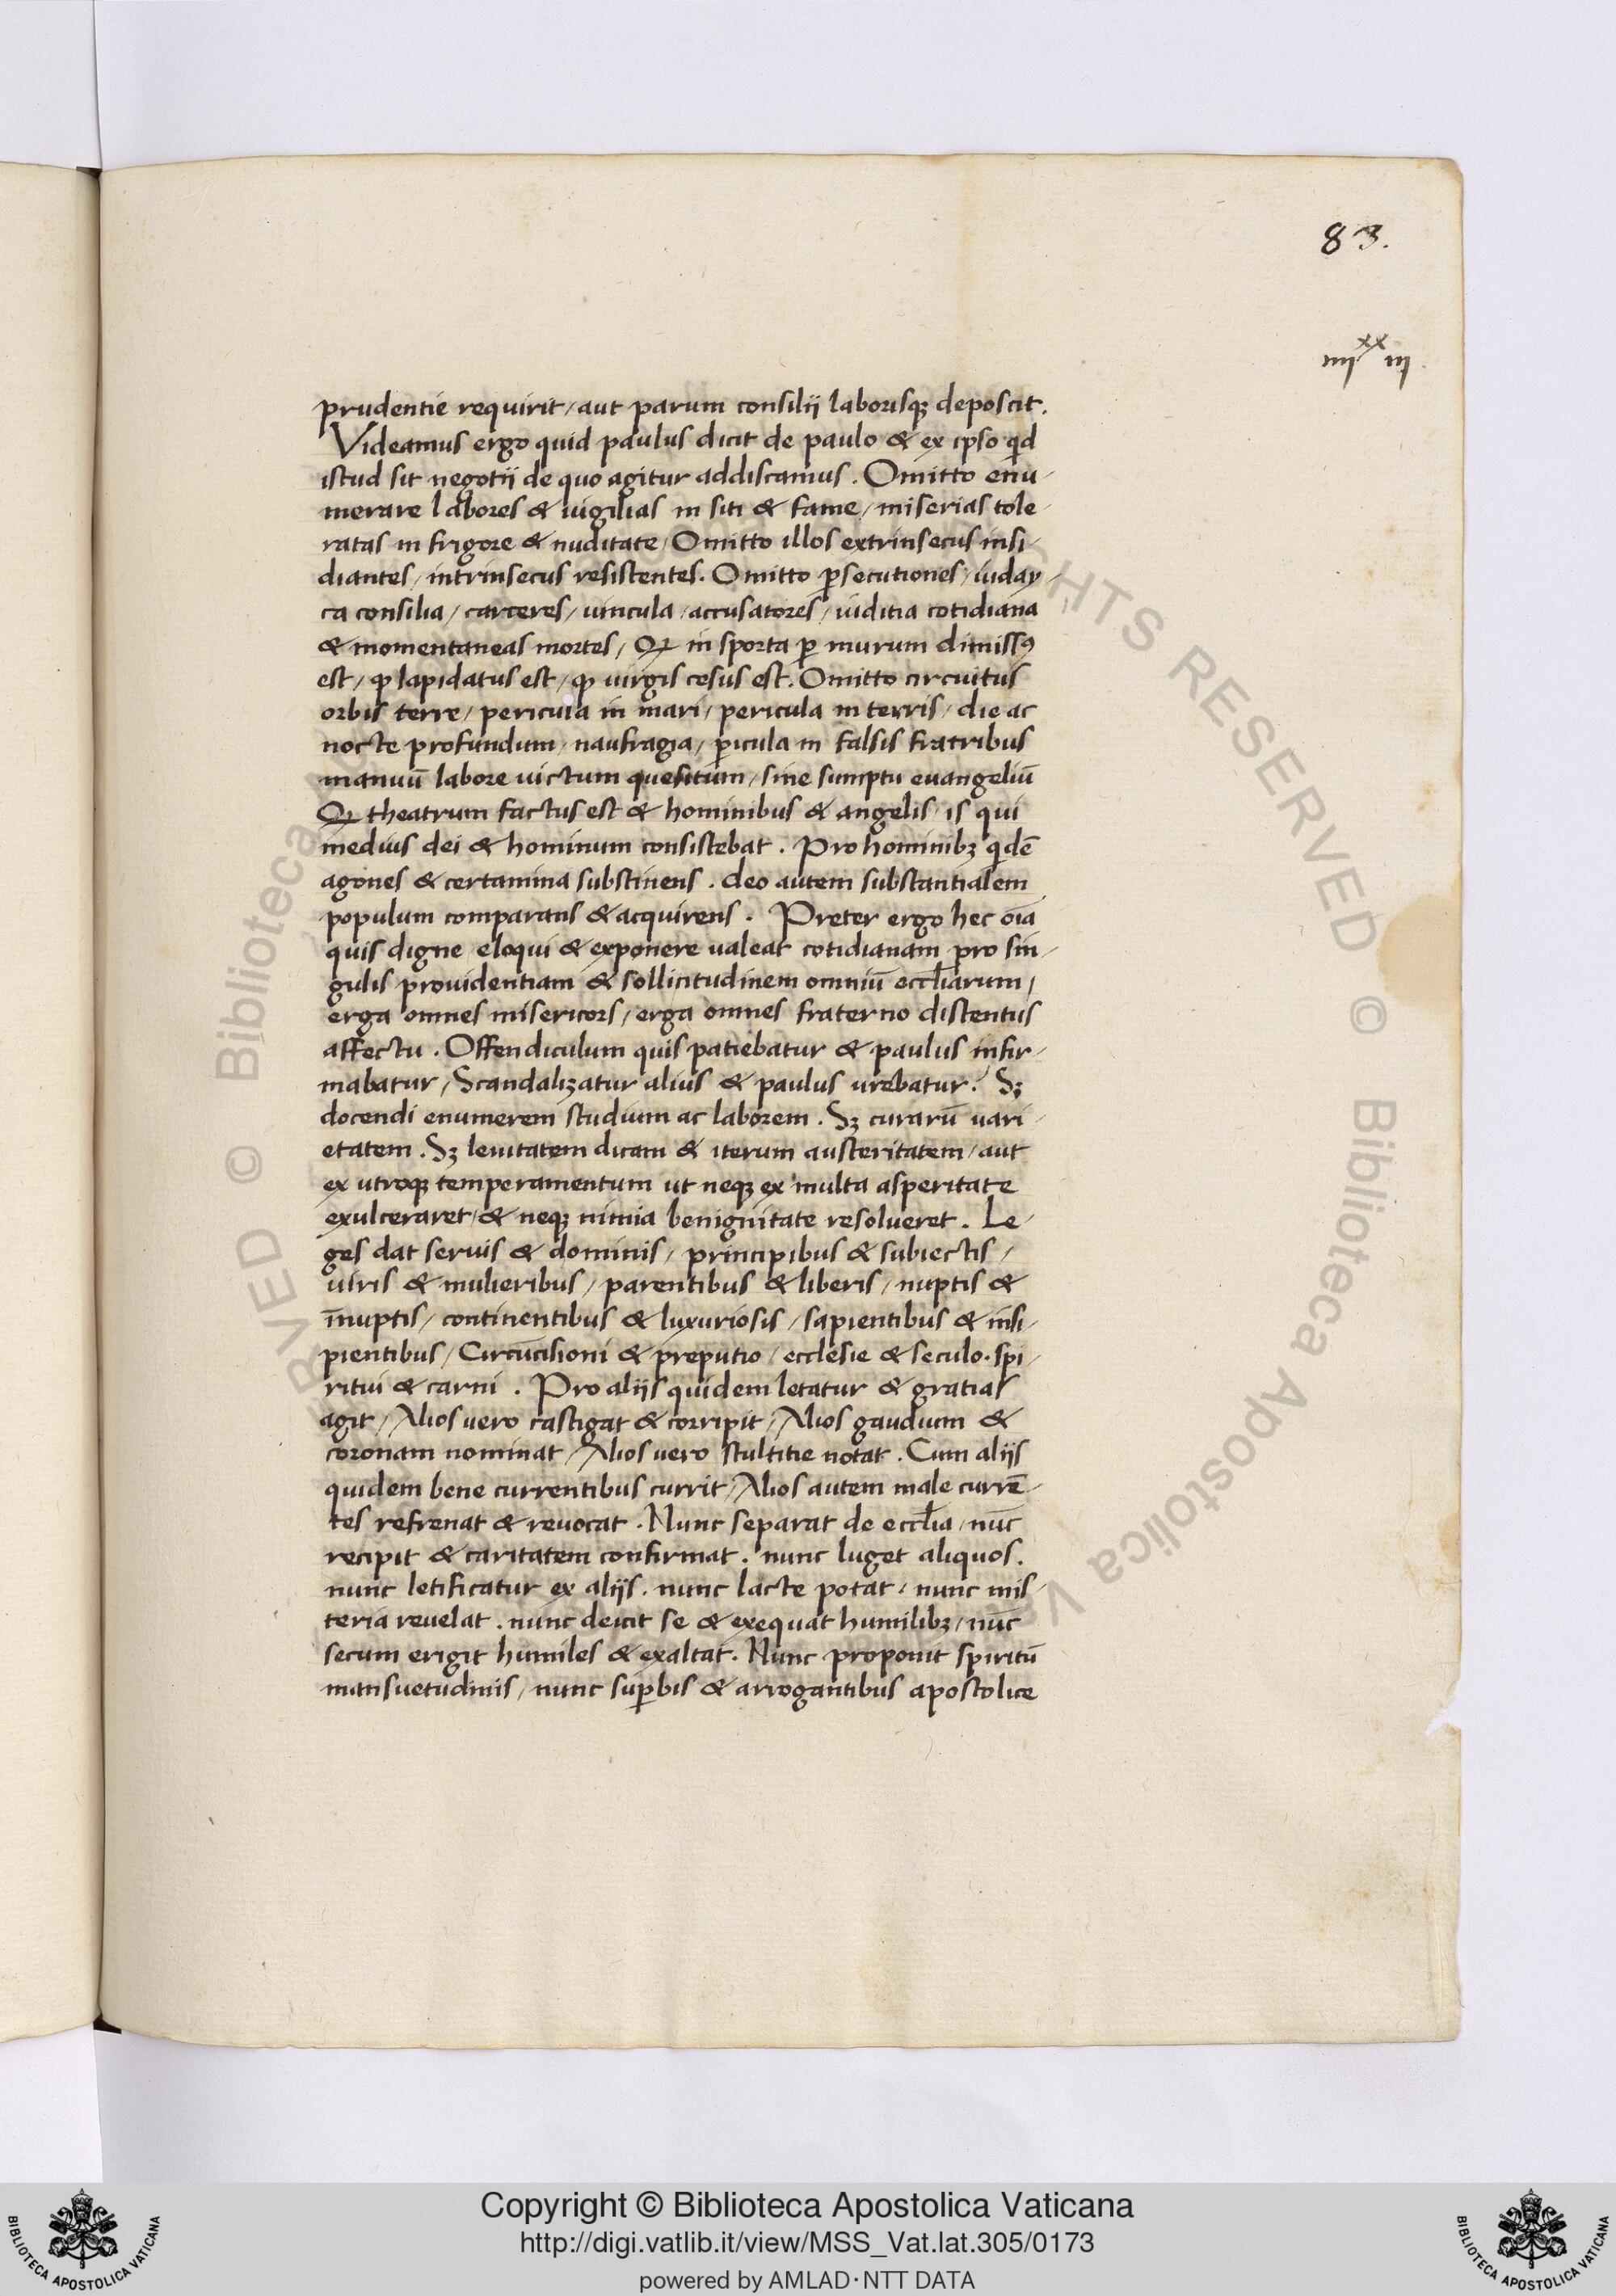 83.
iiijxx iij
prudentie requirit / aut parum consilij laborisqȝ deposcit.
Videamus ergo quid paulus dicit de paulo & ex ipso qid
istud sit negotij de quo agitur addiscamus. Omitto enu-
merare labores & uigilias in siti & fame / miserias tole-
ratas in frigore & nuditate / Omitto illos extrinsecus insi-
diantes / intrinsecus resistentes. Omitto ꝑsecutiones / iuday-
ca consilia / carceres / uincula / accusatores / iuditia cotidiana
& momentaneas mortes / Ꝙ in sporta ꝑ murum dimissꝰ
est / ꝙ lapidatus est / ꝙ uirgis cesus est. Omitto circuitus
orbis terre / pericula in mari / pericula in terris / die ac
nocte profundum / naufragia / ꝑicula in falsis fratribus
manuū labore uictum quesitum / sine sumptu euangeliū
Ꝙ theatrum factus est & hominibus & angelis / is qui
medius dei & hominum consistebat. Pro hominibȝ qidē
agones & certamina substinens. deo autem substantialem
populum comparans & acquirens. Preter ergo hec oīa
quis digne eloqui & exponere ualeat cotidianam pro sin-
gulis prouidentiam & sollicitudinem omniū eccłiarum /
erga omnes misericors / erga omnes fraterno distentus
affectu. Offendiculum quis patiebatur & paulus infir-
mabatur / Scandalizatur alius & paulus urebatur? Sȝ
docendi enumerem studium ac laborem. Sȝ curarū uari-
etatem. Sȝ lenitatem dicam & iterum austeritatem / aut
ex utroqȝ temperamentum ut neqȝ ex multa asperitate
exulceraret / & neqȝ nimia benignitate resolueret. Le-
ges dat seruis & dominis / principibus & subiectis /
uiris & mulieribus / parentibus & liberis / nuptis &
īnuptis / continentibus & luxuriosis / sapientibus & insi-
pientibus / Circūcisioni & preputio / ecclesie & seculo. spi-
ritui & carni. Pro alijs quidem letatur & gratias
agit / Alios uero castigat & corripit / Alios gaudium &
coronam nominat / Alios uero stultitie notat. Cum alijs
quidem bene currentibus currit / Alios autem male currē-
tes refrenat & reuocat. Nunc separat de eccłia / nūc
recipit & caritatem confirmat. nunc luget aliquos.
nunc letificatur ex alijs. nunc lacte potat. nunc mis-
teria reuelat. nunc deicit se & exequat humilibȝ / nūc
secum erigit humiles & exaltat. Nunc proponit spiritū
mansuetudinis / nunc suꝑbis & arrogantibus apostolice
Copyright © Biblioteca Apostolica Vaticana
http://digi.vatlib.it/view/MSS_Vat.lat.305/0173
powered by AMLAD·NTT DATA
BIBLIOTECA APOSTOLICA VATICANA
BIBLIOTECA APOSTOLICA VATICANA